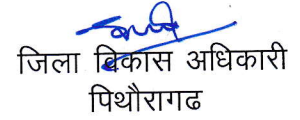 जिला विकास अधिकारी
पिथौरागढ